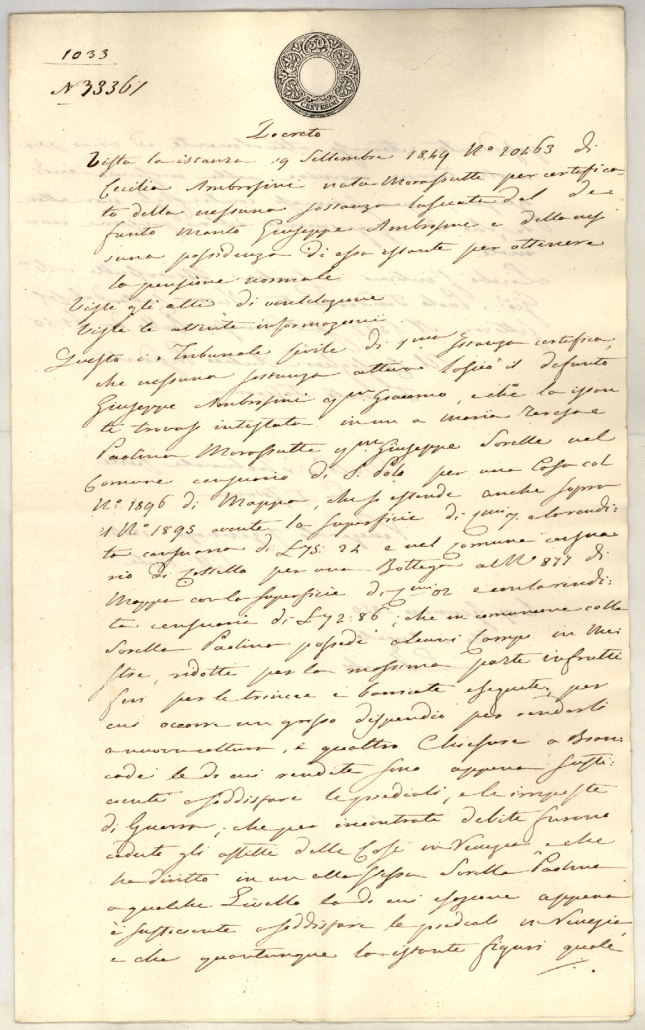 1033
N 33361
50
CENTESIMI
Decreto
Vista la istanza 19 Settembre 1849 Nº 20463 di
Cecilia Ambrosini nata Morassutte per certifica-
to della nessuna sostanza lasciata dal de-
funto marito Giuseppe Ambrosini e della nes
suna possidenza di essa istante per ottenere
la pensione normale
Viste gli atti di ventilazione
Viste le assunte informazioni
Questo i. r. Tribunale Civile di Istanza certifica,
che nessuna sostanza attiva lasciò il defunto
Giuseppe Ambrosini qm Giacomo, e che la istan
te trovasi intestata in un a Maria Teresa e
Paolina Morassutte qm Giuseppe Sorelle nel
Comune censuario di S. Polo per una Casa col
Nº 1896 di Mappa, che si estende anche sopra
il Nº 1895 avente la superficie di e la rendi:
ta censuaria di £ 75: 24 e nel Comune censua
rio di Castello per una Bottega al Nº 877 di
Mappa con la superficie di 02 e con la rendi:
ta censuaria di £ 72: 86; che in comunione colla
Sorella Paolina possede alcuni Campi in Mes
stre, ridotte per la massima parte infrutti
feri per le trincee e barricate eseguite, per
cui occorre un grosso dispendio per renderli
a nuova coltura, e quattro Chiusure a Bron:
cade le di cui rendite sono appena suffi:
cienti a soddisfare le prediali, e le imposte
di Guerra; che per incontrate debite furono
cedute gli affitti delle Case in Venezia e che
ha diritto in un alla stessa Sorella Paolina
a qualche Livello la di cui esazione appena
è sufficiente a soddisfare le prediali in Venezia
e che quantunque la istante figuri quale